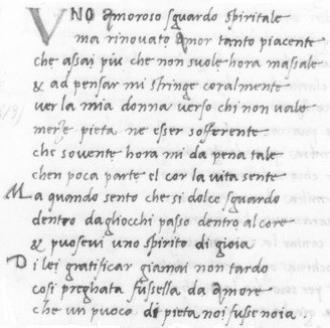 VNO amoroso sguardo spiritale
ma rinovato amor tanto piacente
che assai piu che non suole hora massale
& ad pensar mi stringe coralmente
ver la mia donna verso chi non vale
merze pieta ne esser sofferente
che sovente hora mi da pena tale
chen poca parte el cor la vita sente
Ma quando sento che si dolce sguardo
dentro dagliocchi passo dentro al core
& posevi uno spirito di gioia
Di lei gratificar giamai non tardo
cosi preghata fussella da amore
che un puoco di pieta noi fuse noia